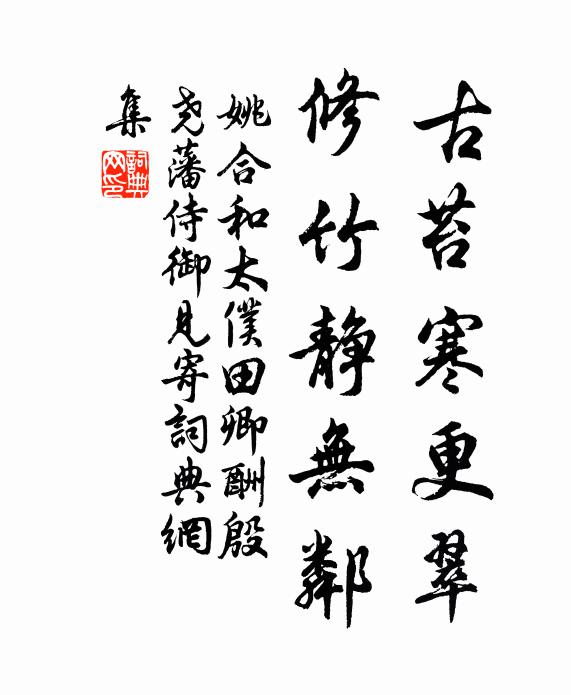 古苔寒更翠
修竹靜無鄰
姚合和太僕田卿酬殷
尧藩侍御見寄詞典網
集
詞典
网印